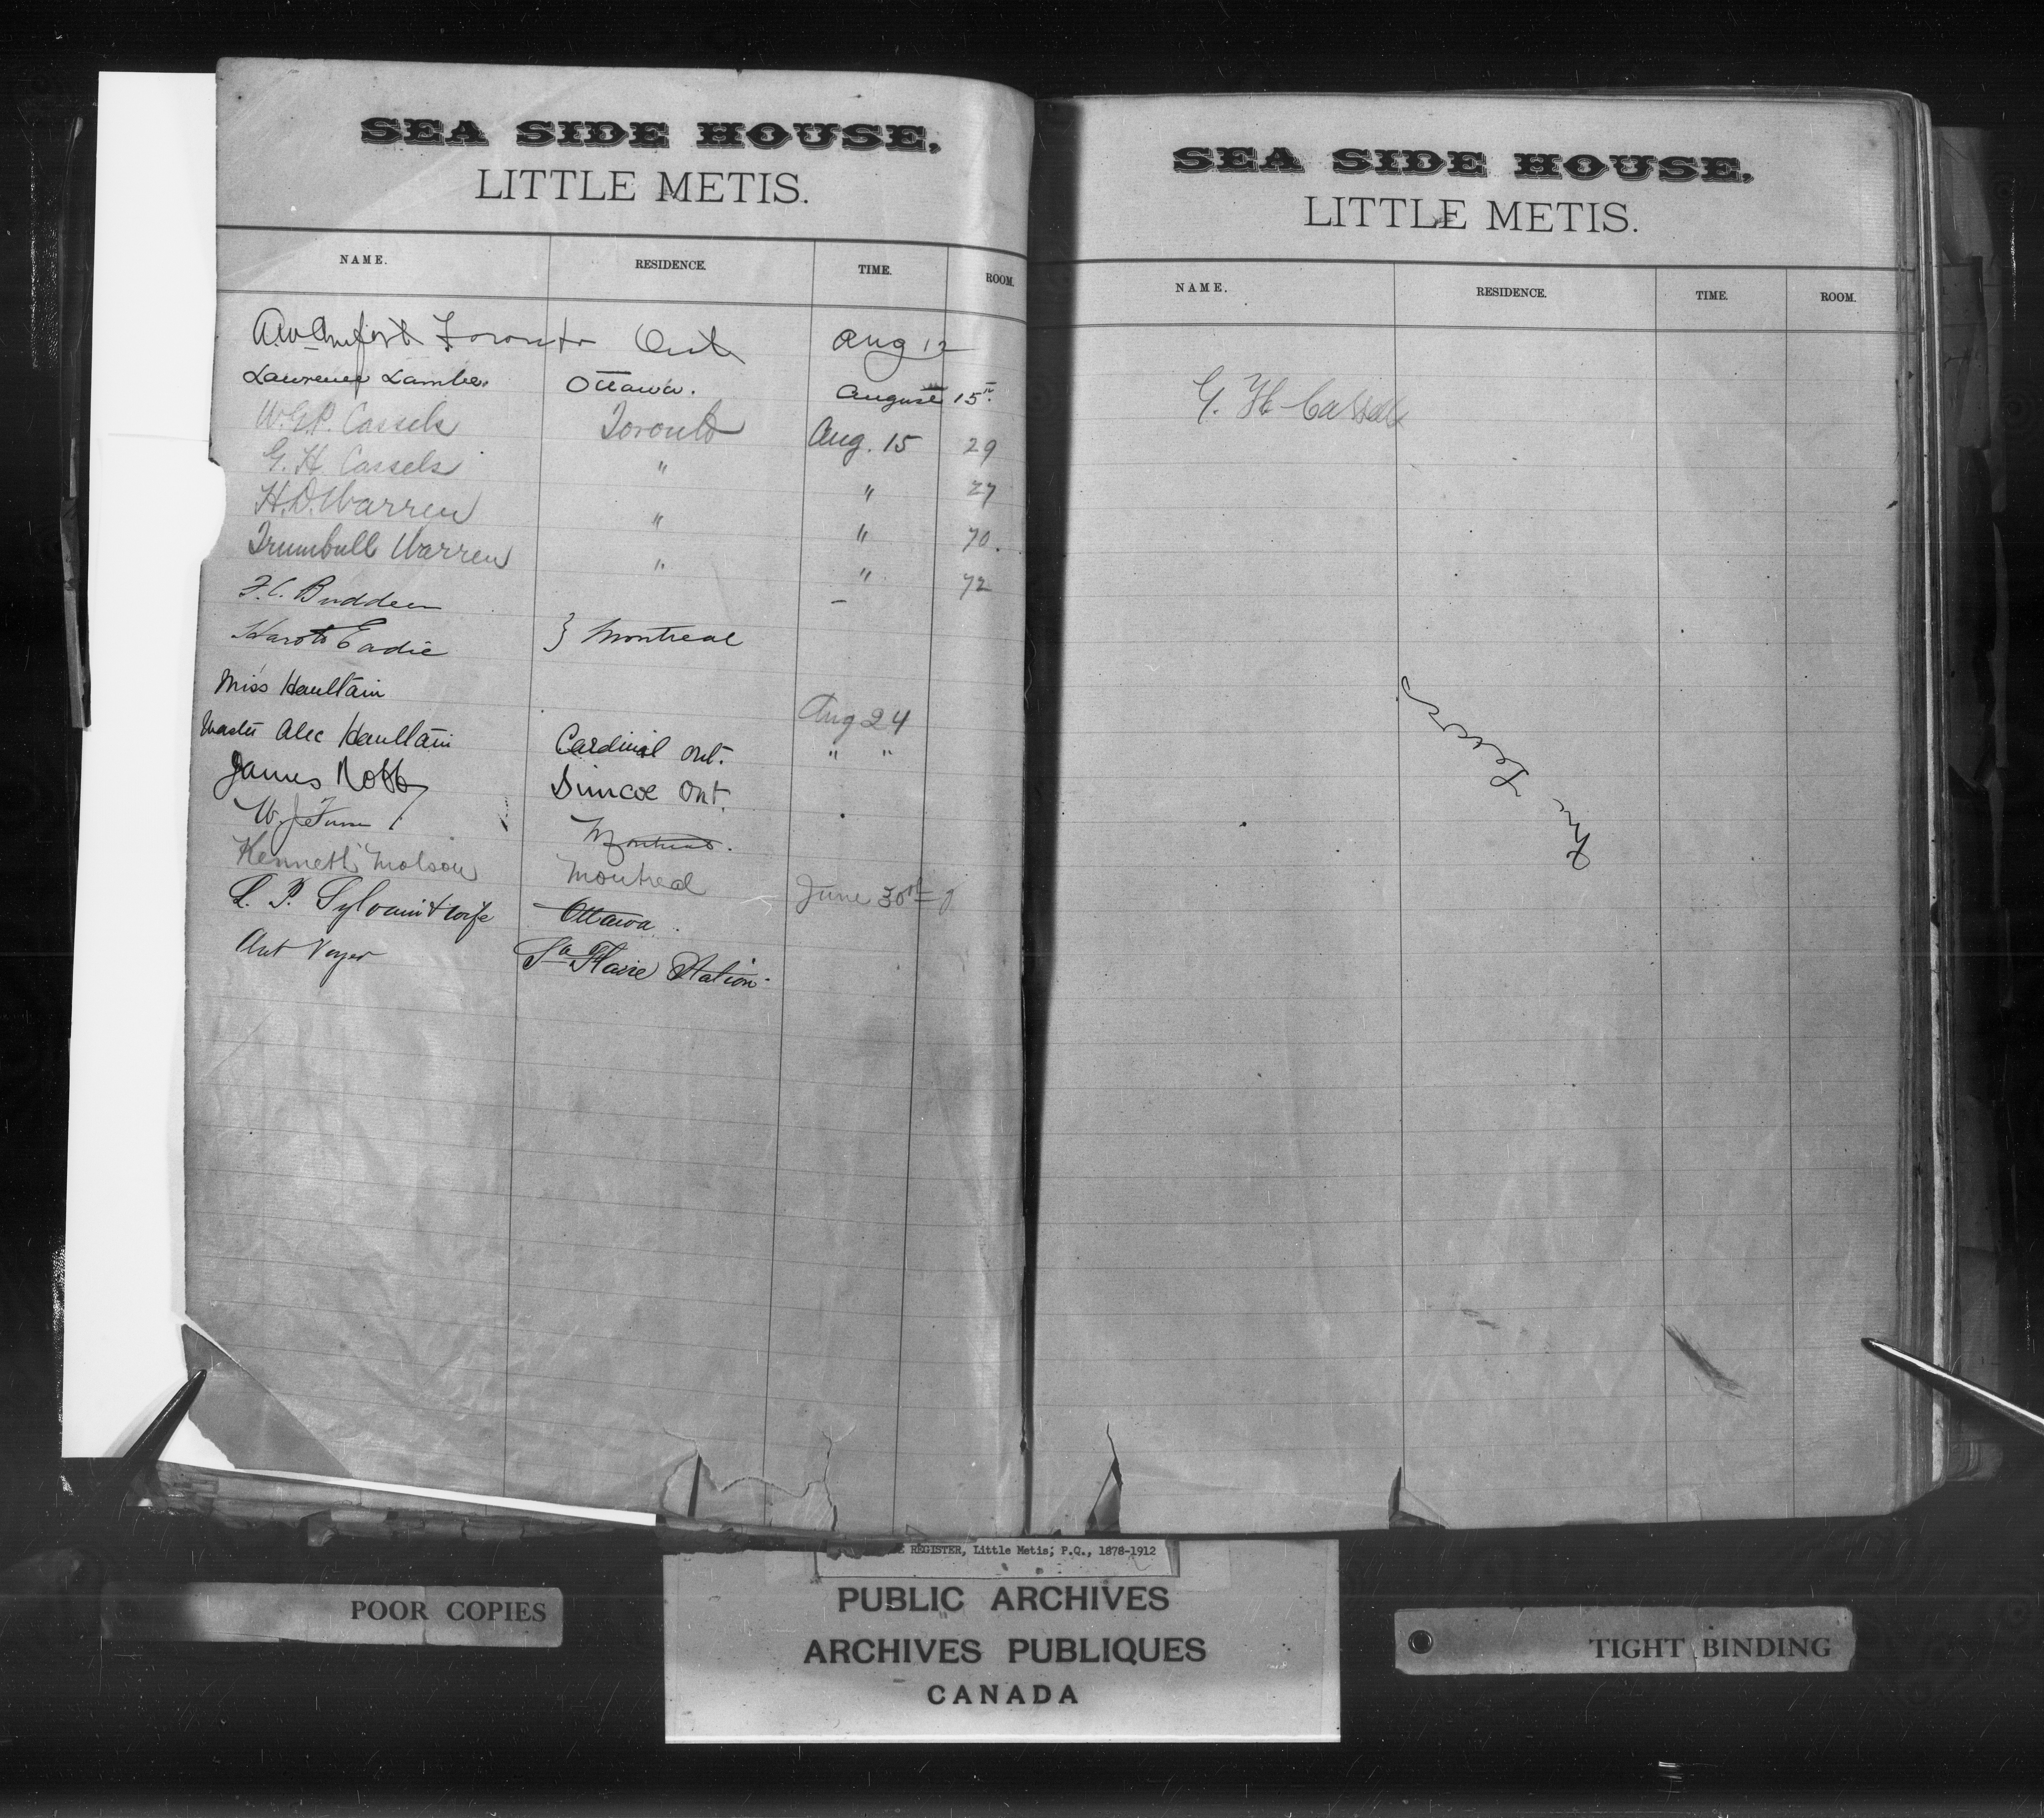 SEA SIDE HOUSE,
LITTLE METIS.
NAME. RESIDENCE. TIME. ROOM.
Toronto Ont Aug 12
Lawrence Lambe. Ottawa. August 15th.
W.G.P. Cassels Toronto Aug. 15 29
G. H. Cassels " " 27
H.D. Warren " " 70.
Trumbull Warren " " 72
F.C. Budden –
Harold Eadie } Montreal
Miss Haultain Aug 24
Master Alec Haultain Cardinal Ont. " "
James Robb Simcoe Ont.
W. J. Montreal.
Kenneth Molson Montreal June 30th
L. P. Sylvain & wife Ottawa
Ant Voyer Ste Flavie Station.
SEA SIDE HOUSE,
LITTLE METIS.
NAME. RESIDENCE. TIME. ROOM.
G. H. Cassels
REGISTER, Little Metis, P.Q., 1878-1912
POOR COPIES
PUBLIC ARCHIVES
ARCHIVES PUBLIQUES
CANADA
TIGHT BINDING